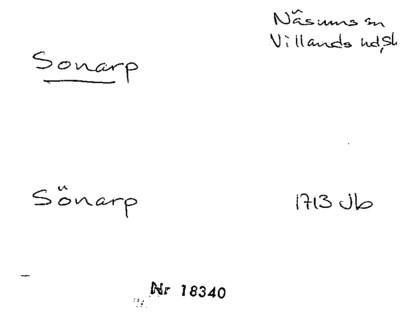 Näsums sn
Villands hd, Sk
Sonarp
Sönarp
1713 Jb
Nr 18340